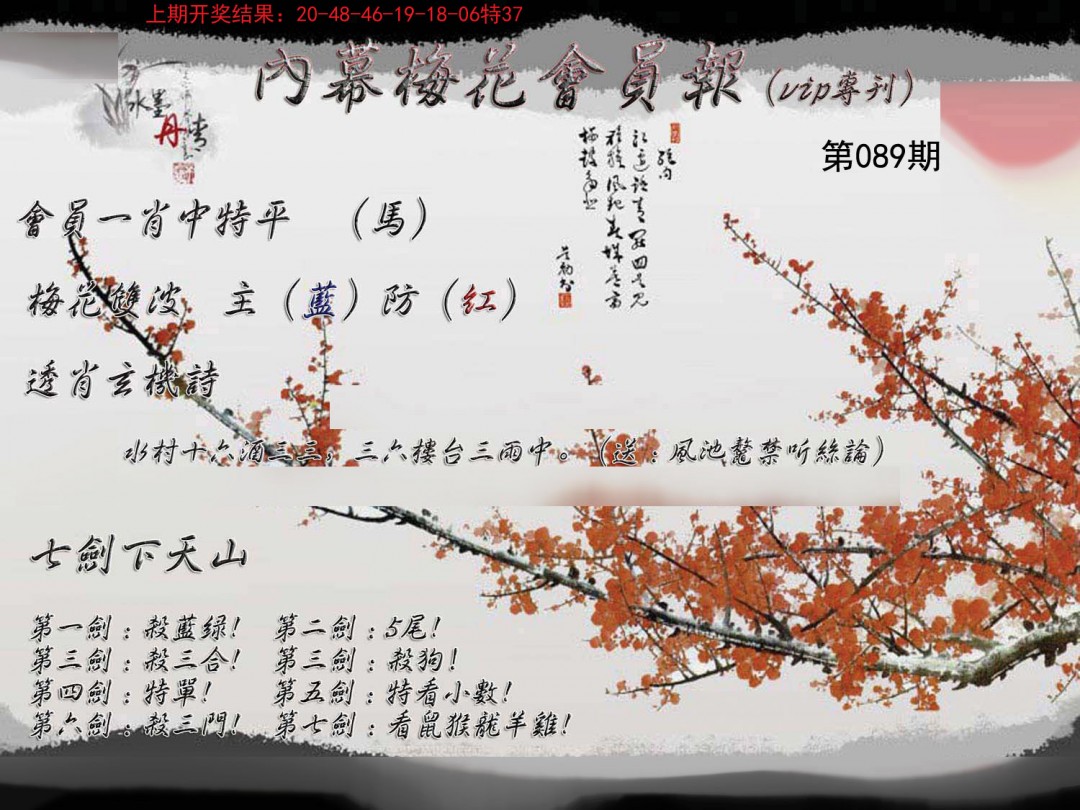 上期开奖结果：20-48-46-19-18-06特37
內幕梅花會員報（vip專刊）
水墨
丹青
第089期
會員一肖中特平　（馬）
梅花雙波　主（藍）防（红）
透肖玄機詩
水村十六酒三三，三六樓台三雨中。（送：風池鼇禁听絲論）
七劍下天山
第一劍：殺藍绿！　第二劍：5尾！
第三劍：殺三合！　第三劍：殺狗！
第四劍：特單！　第五劍：特看小數！
第六劍：殺三門！　第七劍：看鼠猴龍羊雞！